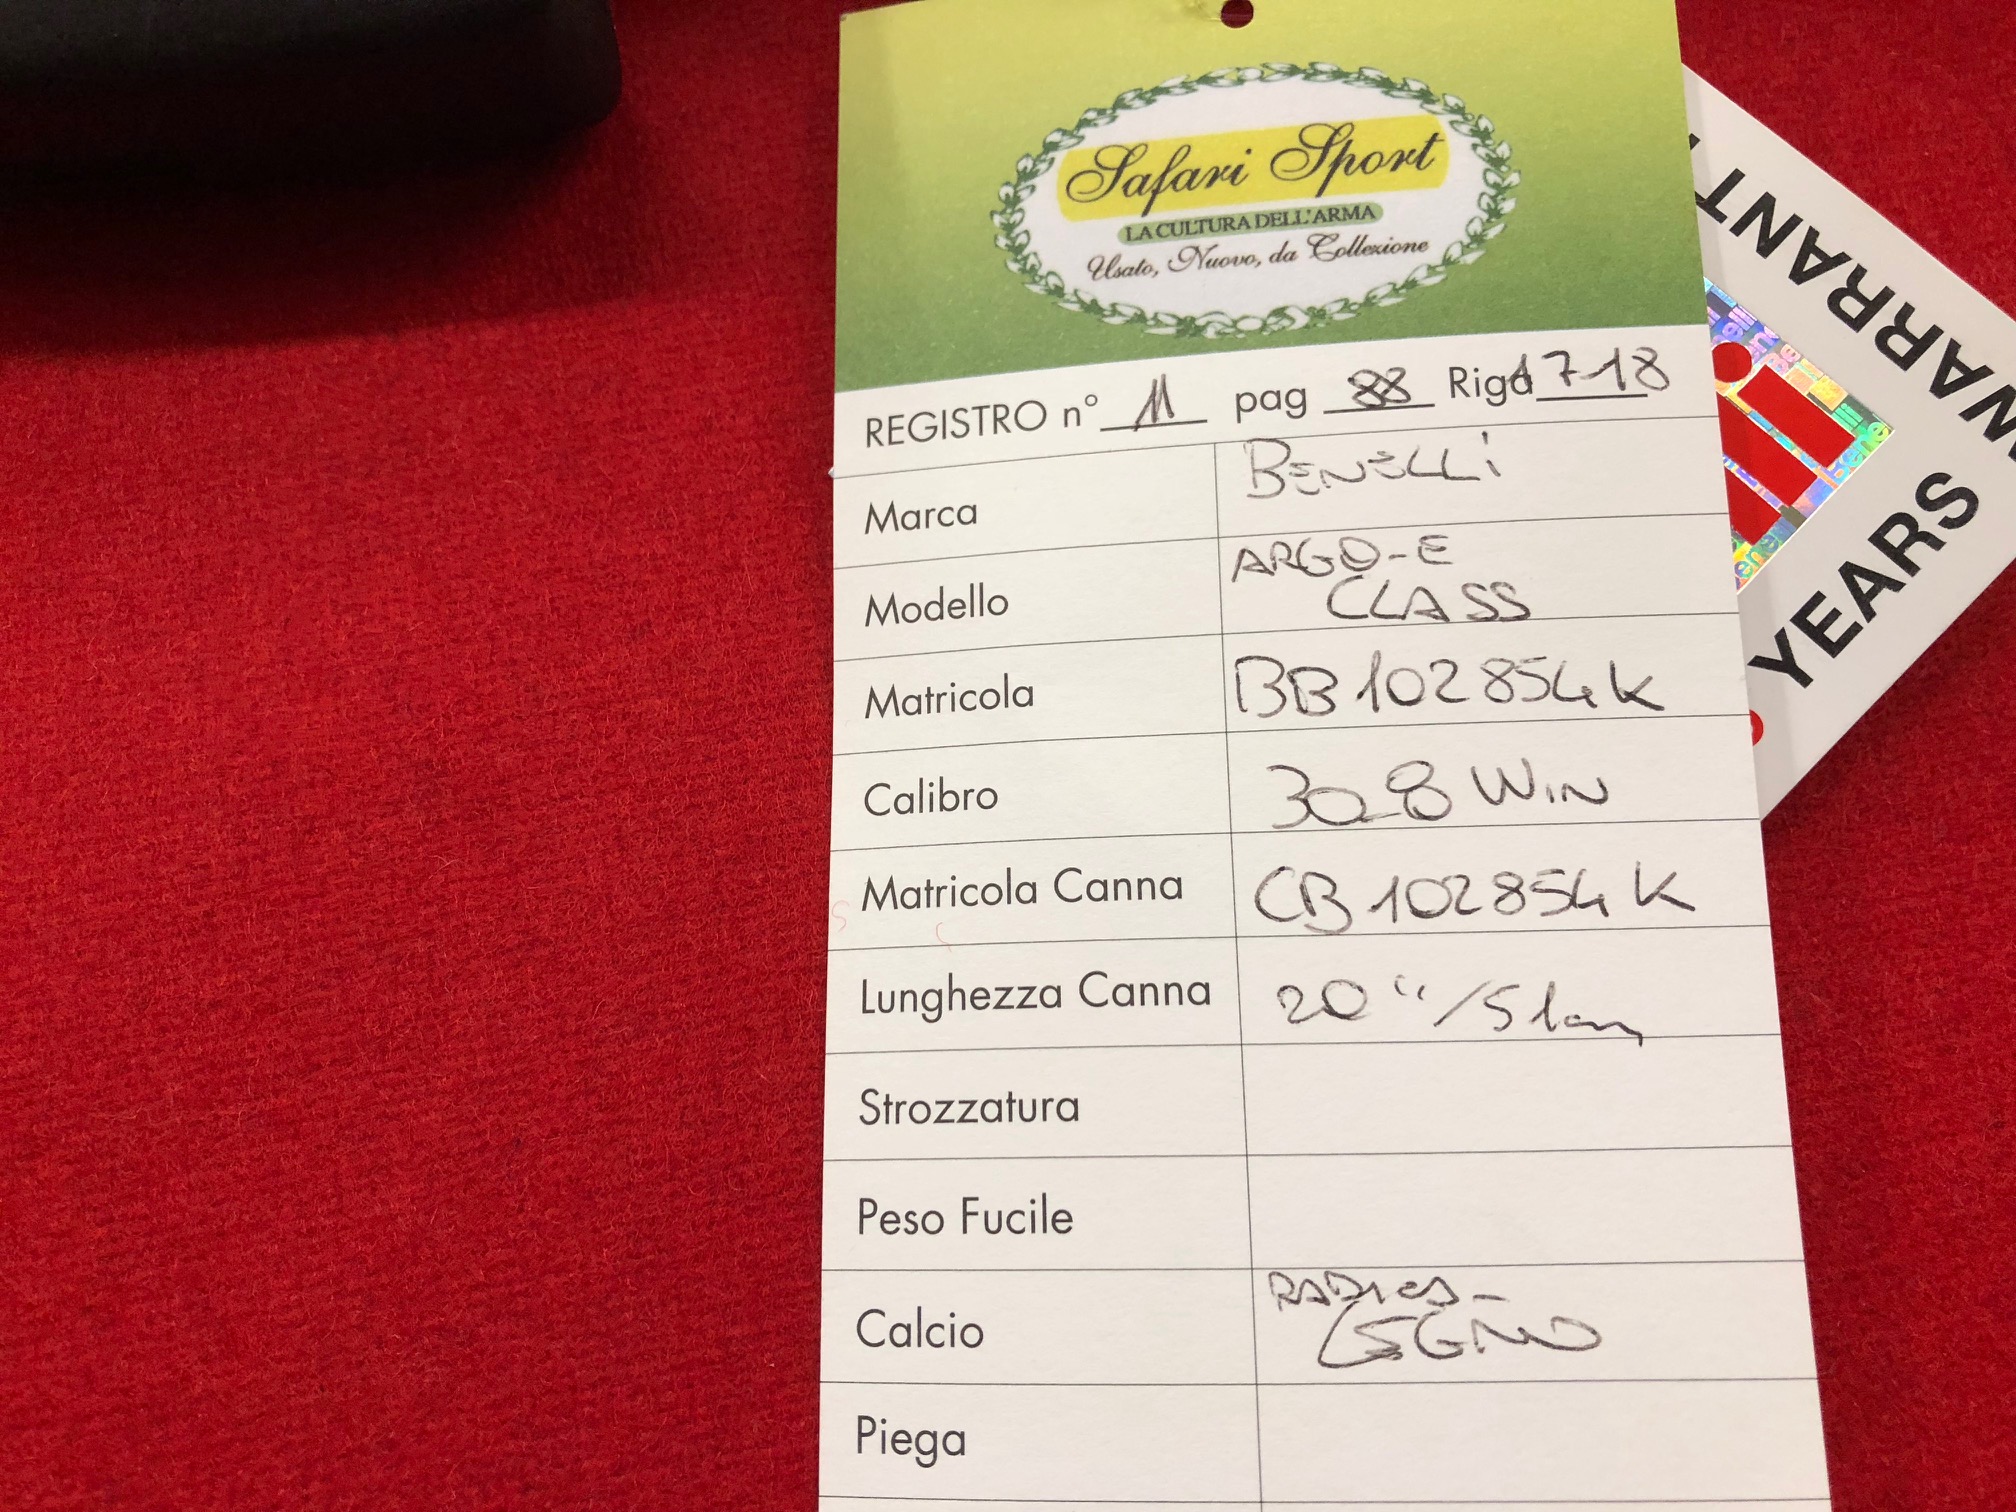 Safari Sport
LA CULTURA DELL'ARMA
Usato, Nuovo, da Collezione
REGISTRO n° 11 pag 88 Riga 17-18
Marca BENELLI
Modello ARGO-E
CLASS
Matricola BB102854K
Calibro 308 WIN
Matricola Canna CB102854K
Lunghezza Canna 20"/51cm
Strozzatura
Peso Fucile
Calcio RADICA-
LEGNO
Piega
WARRANT
YEARS